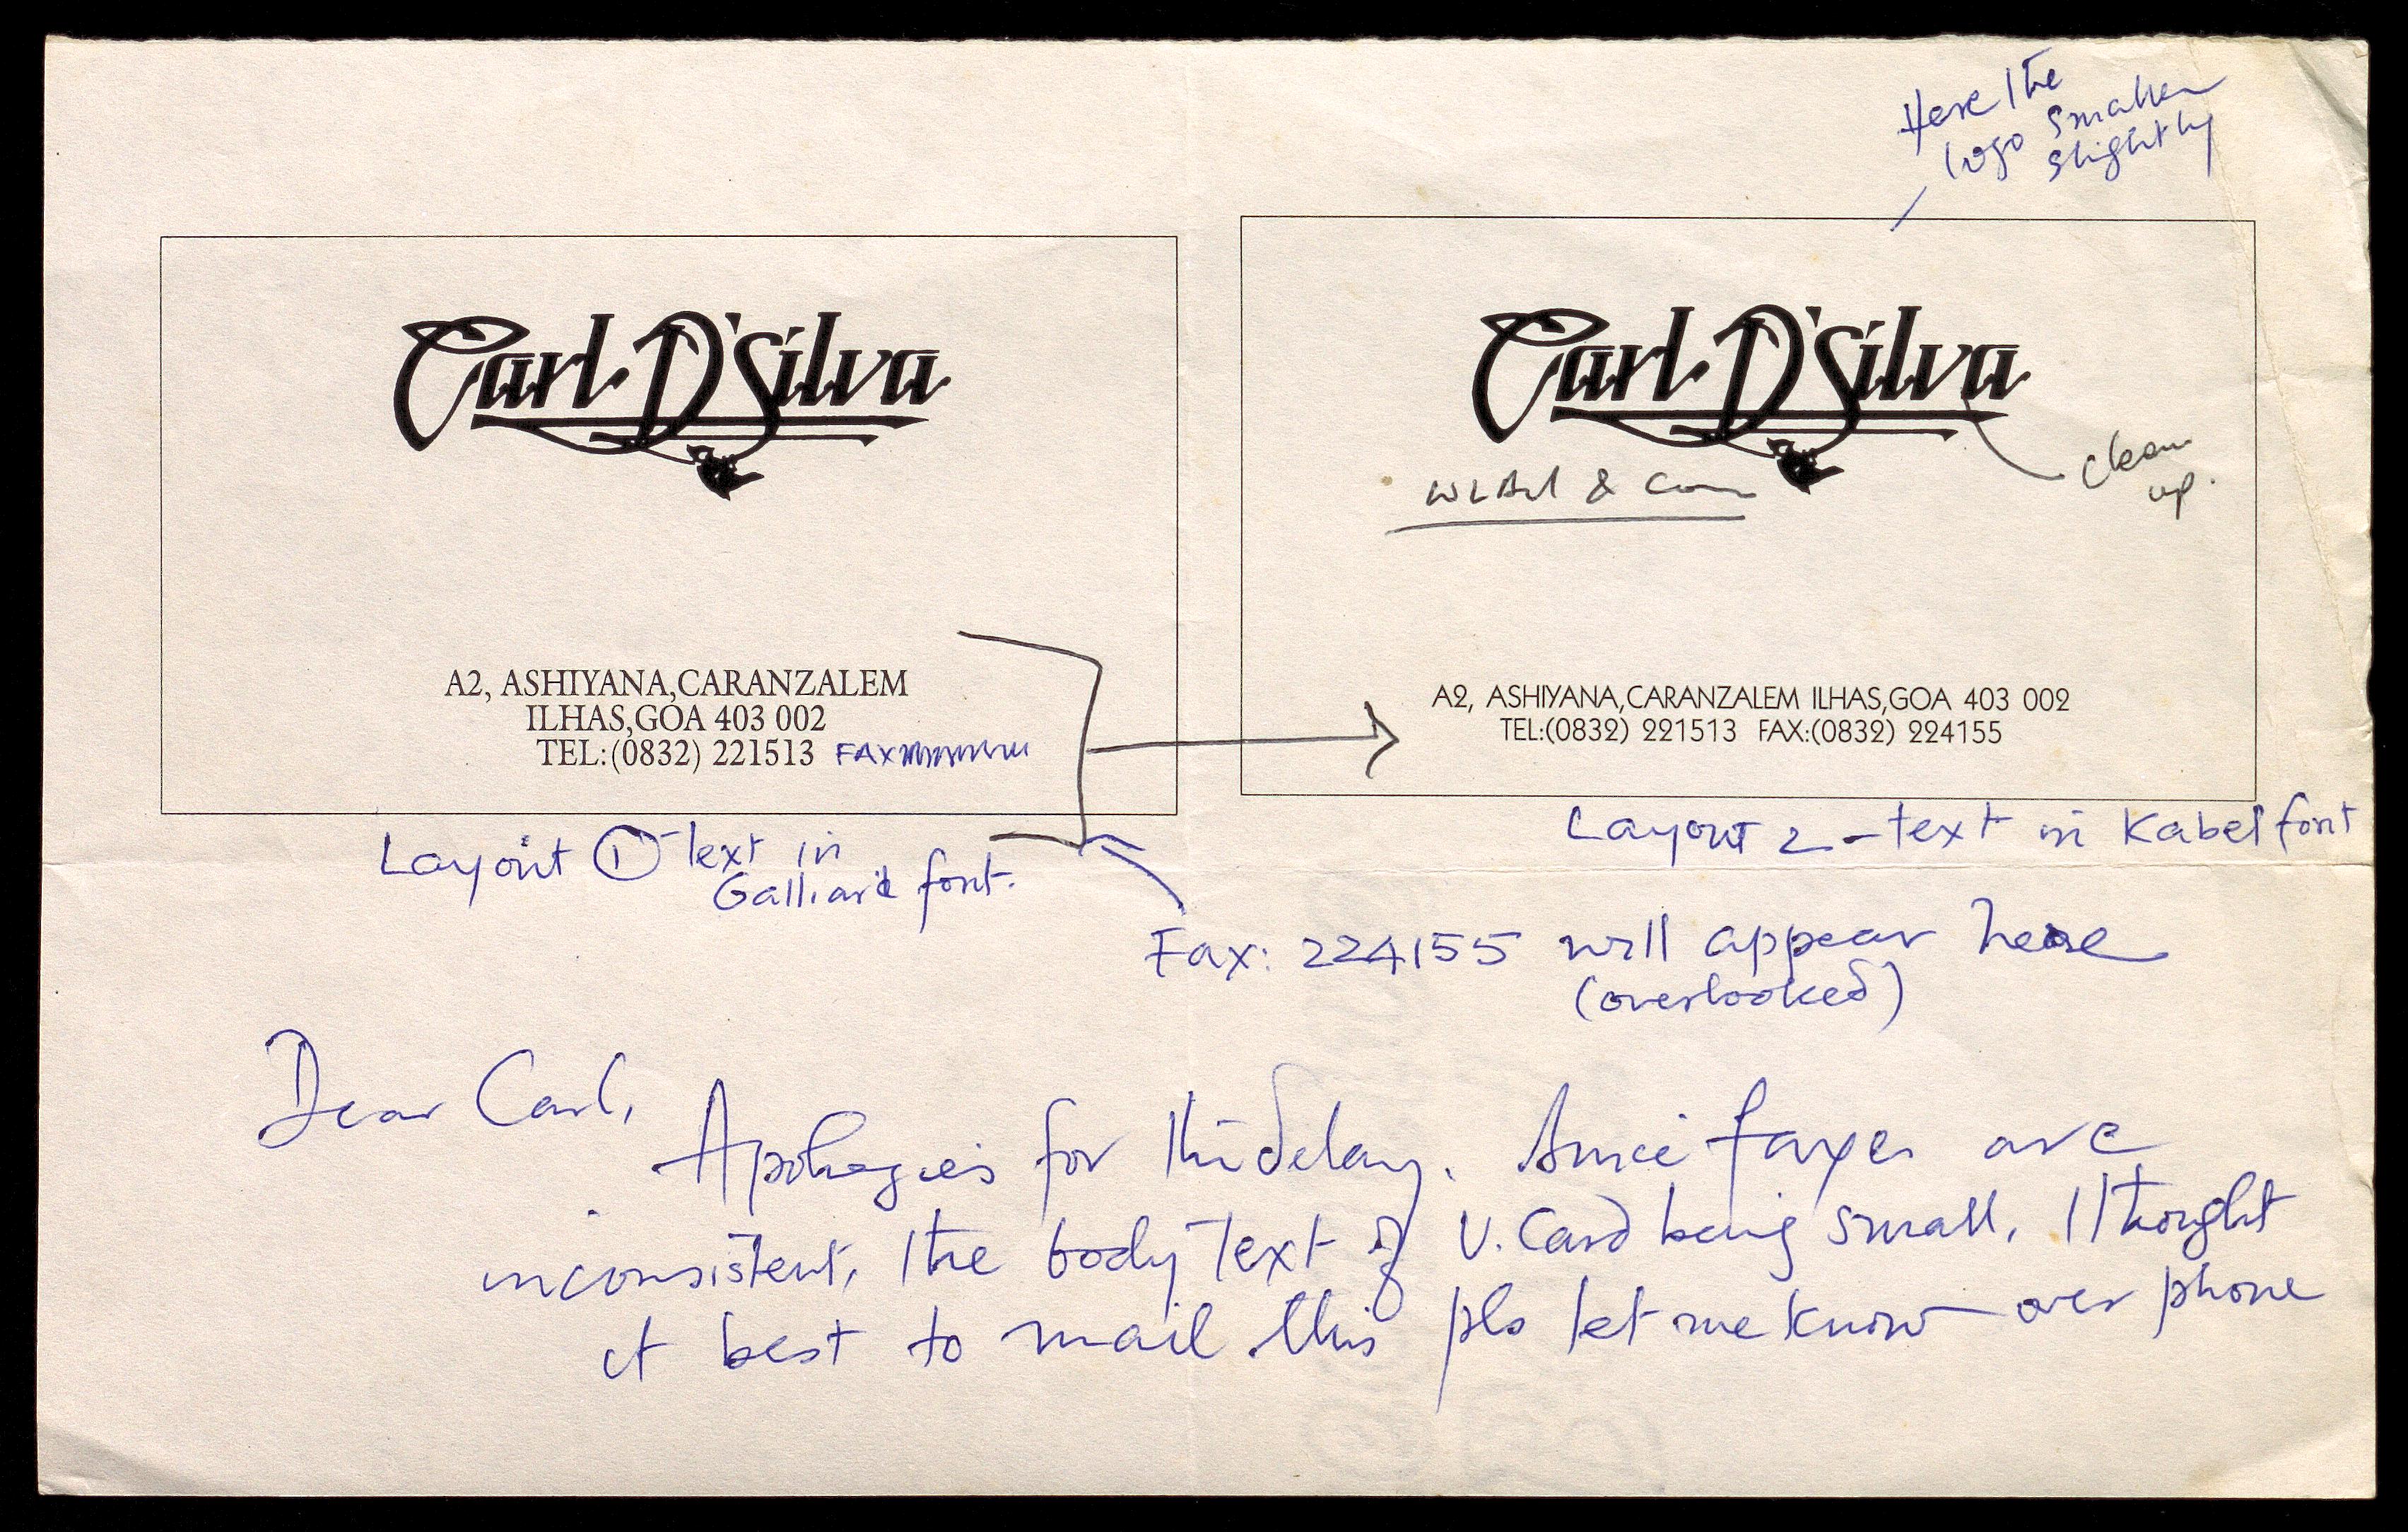 Here the
logo smaller
slightly
Carl D'Silva
A2, ASHIYANA,CARANZALEM
ILHAS,GOA 403 002
TEL:(0832) 221513 FAX
Layout 1 - text in
Galliard font.
Carl D'Silva
clean
up.
&
A2, ASHIYANA,CARANZALEM ILHAS,GOA 403 002
TEL:(0832) 221513 FAX:(0832) 224155
Layout 2 - text in Kabel font
Fax: 224155 will appear here
(overlooked)
Dear Carl,
Apologies for the delay. Since faxes are
inconsistent, the body text of V. Card being small, I thought
it best to mail this pls let me know over phone